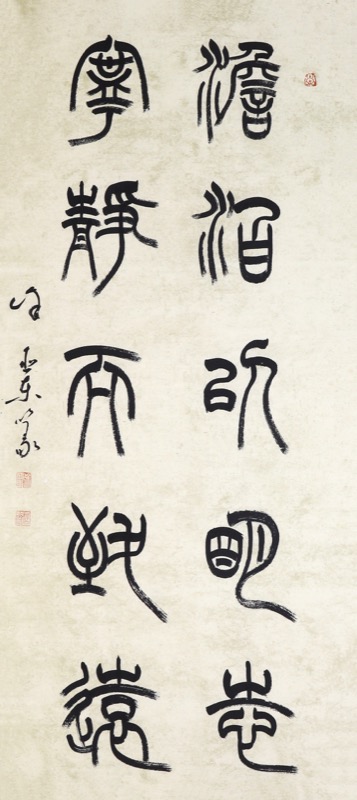 澹泊以明志
寧靜而致遠